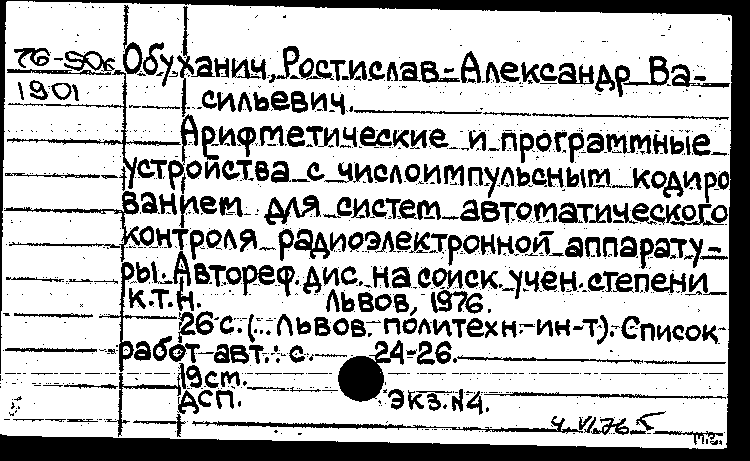 76-50к Обуханич, Ростислав-Александр Ва-
1901 сильевич.
Арифметические и программные
устройства с числоимпульсным кодиро
ванием для систем автоматического
контроля радиоэлектронной аппарату-
ры. Автореф. дис. на соиск. учен. степени
к.т.н. Львов, 1976.
26 с. (.. Львов. политехн. ин-т). Список
работ авт.: с. 24-26.
19см.
ДСП. Экз. №4.
4.VI.76
м.г.